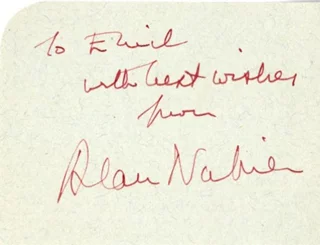 To Enid
with best wishes
from
Alan Napier